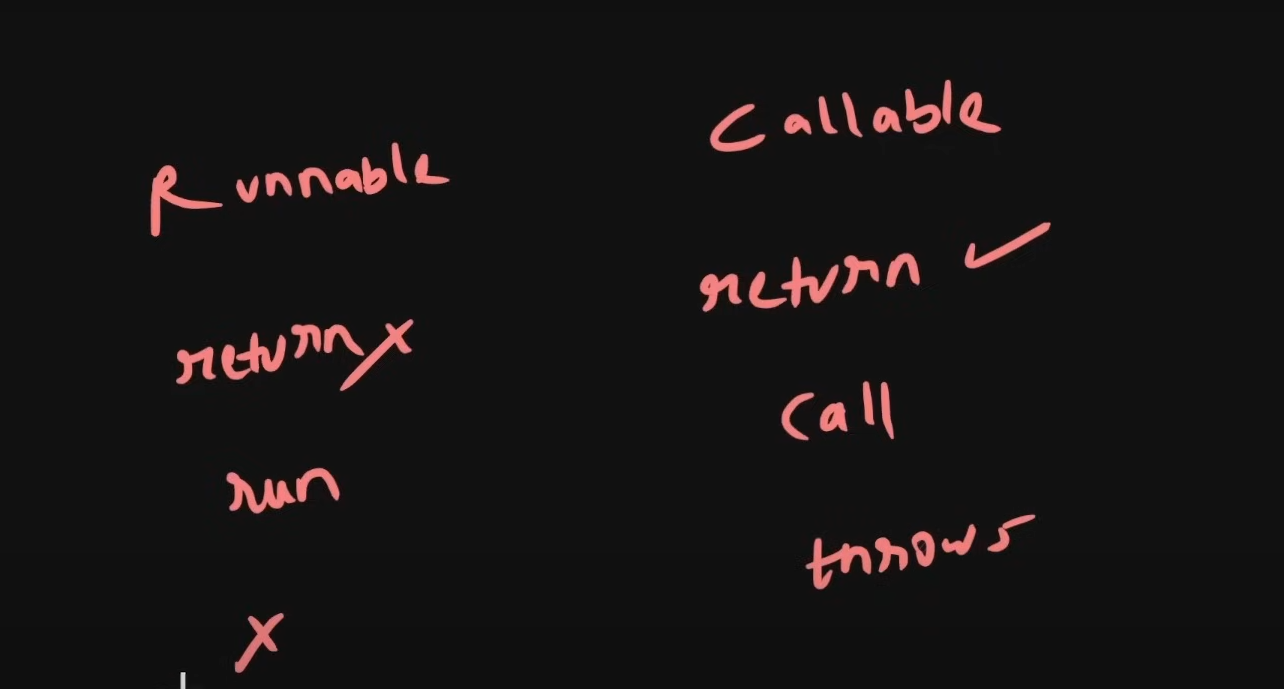 Runnable
return x
run
x
Callable
return ✓
Call
throws